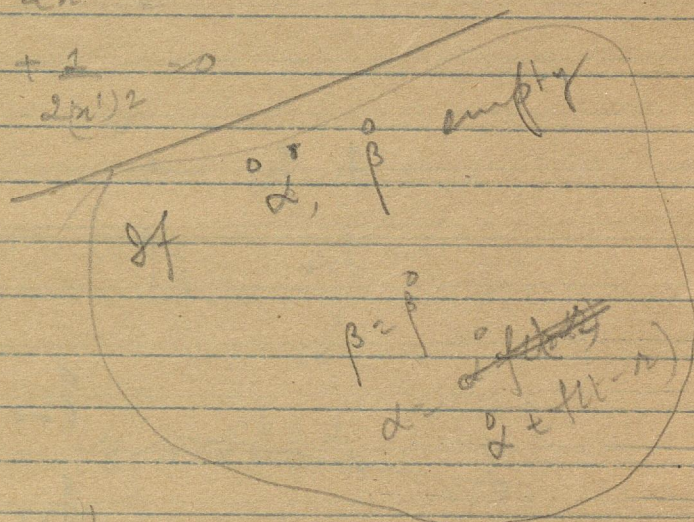 + 1/2(x')² = 0
If α̊, β̊ empty
β = β̊
α = α̊ + f(t - r)